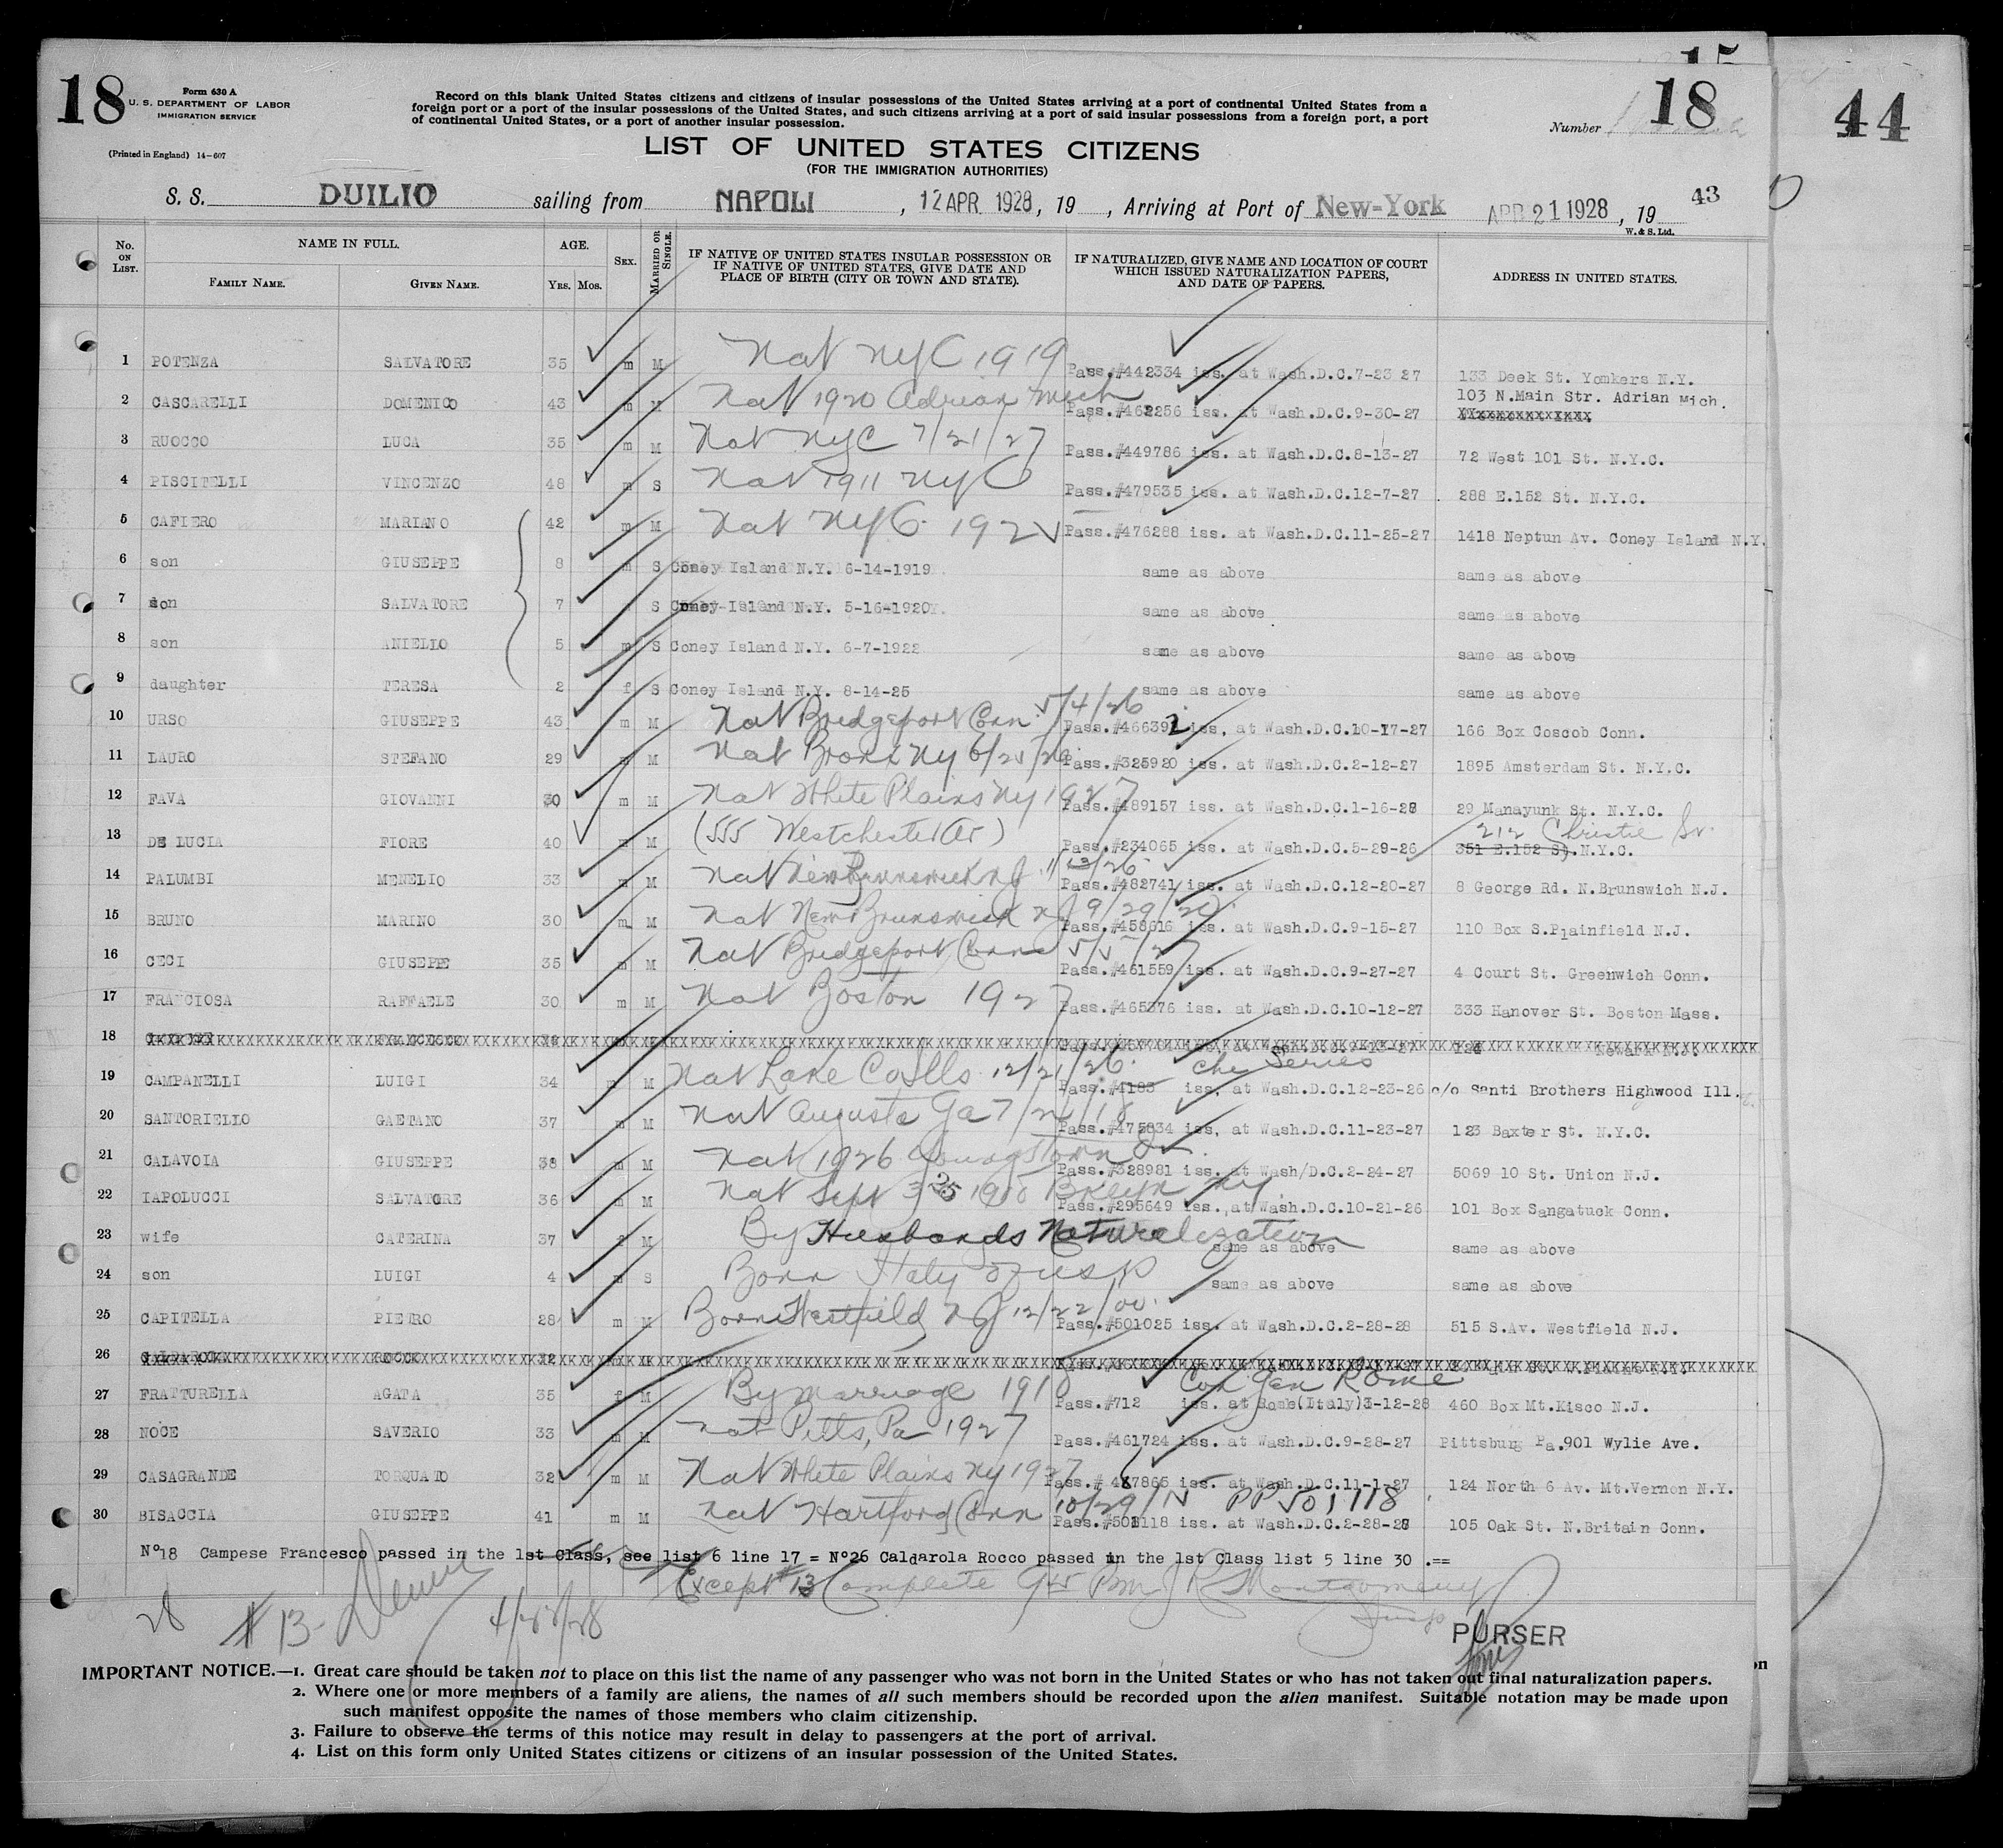 15
18 Form 630 A 18 44
U. S. DEPARTMENT OF LABOR
IMMIGRATION SERVICE
(Printed in England) 14-607
Record on this blank United States citizens and citizens of insular possessions of the United States arriving at a port of continental United States from a
foreign port or a port of the insular possessions of the United States, and such citizens arriving at a port of said insular possessions from a foreign port, a port
of continental United States, or a port of another insular possession.
Number
LIST OF UNITED STATES CITIZENS
(FOR THE IMMIGRATION AUTHORITIES)
S. S. DUILIO sailing from NAPOLI, 12 APR. 1928, 19 , Arriving at Port of New-York APR 21 1928, 19 43
W. & S. Ltd.
No. ON LIST. NAME IN FULL. FAMILY NAME. GIVEN NAME. AGE. YRS. MOS. SEX. MARRIED OR SINGLE. IF NATIVE OF UNITED STATES INSULAR POSSESSION OR IF NATIVE OF UNITED STATES, GIVE DATE AND PLACE OF BIRTH (CITY OR TOWN AND STATE). IF NATURALIZED, GIVE NAME AND LOCATION OF COURT WHICH ISSUED NATURALIZATION PAPERS, AND DATE OF PAPERS. ADDRESS IN UNITED STATES.
1 POTENZA SALVATORE 35 m M Nat NYC 1919 Pass.#442334 iss. at Wash.D.C.7-23 27 133 Deek St. Yomkers N.Y.
2 CASCARELLI DOMENICO 43 m M Nat 1920 Adrian Mich Pass.#462256 iss. at Wash.D.C.9-30-27 103 N.Main Str. Adrian Mich.
3 RUOCCO LUCA 35 m M Nat NYC 7/21/27 Pass.#449786 iss. at Wash.D.C.8-13-27 72 West 101 St. N.Y.C.
4 PISCITELLI VINCENZO 48 m S Nat 1911 NYC Pass.#479535 iss. at Wash.D.C.12-7-27 288 E.152 St. N.Y.C.
5 CAFIERO MARIANO 42 m M Nat NYC 192 Pass.#476288 iss. at Wash.D.C.11-25-27 1418 Neptun Av. Coney Island N.Y.
6 son GIUSEPPE 8 m S Coney Island N.Y. 6-14-1919 same as above same as above
7 son SALVATORE 7 S Coney Island N.Y. 5-16-1920 same as above same as above
8 son ANIELLO 5 m S Coney Island N.Y. 6-7-1922 same as above same as above
9 daughter TERESA 2 f S Coney Island N.Y. 8-14-25 same as above same as above
10 URSO GIUSEPPE 43 m M Nat Bridgeport Conn. 5/4/26 Pass.#466392 iss. at Wash.D.C.10-17-27 166 Box Coscob Conn.
11 LAURO STEFANO 29 m M Nat Bronx NY 6/25/26 Pass.#325920 iss. at Wash.D.C.2-12-27 1895 Amsterdam St. N.Y.C.
12 FAVA GIOVANNI 30 m M Nat White Plains NY 1927 Pass.#489157 iss. at Wash.D.C.1-16-28 29 Manayunk St. N.Y.C.
13 DE LUCIA FIORE 40 m M (555 Westchester Av) Pass.#234065 iss. at Wash.D.C.5-29-26 212 Christie St. 351 E.152 St.N.Y.C.
14 PALUMBI MENELIO 33 m M Nat New Brunswick NJ 11/12/26 Pass.#482741 iss. at Wash.D.C.12-20-27 8 George Rd. N.Brunswich N.J.
15 BRUNO MARINO 30 m. M Nat New Brunswick NJ 9/29/20 Pass.#458616 iss. at Wash.D.C.9-15-27 110 Box S.Plainfield N.J.
16 CECI GIUSEPPE 35 m M Nat Bridgeport Conn 5/5/27 Pass.#461559 iss. at Wash.D.C.9-27-27 4 Court St. Greenwich Conn.
17 FRANCIOSA RAFFAELE 30 m M Nat Boston 1927 Pass.#465376 iss. at Wash.D.C.10-12-27 333 Hanover St. Boston Mass.
18
19 CAMPANELLI LUIGI 34 m M Nat Lake Co Ills 12/21/26 Che Series Pass.#4183 iss. at Wash.D.C.12-23-26 c/o Santi Brothers Highwood Ill.
20 SANTORIELLO GAETANO 37 m M Nat Augusta Ga 7/21/18 Pass.#475834 iss. at Wash.D.C.11-23-27 123 Baxter St. N.Y.C.
21 CALAVOIA GIUSEPPE 38 m M Nat 1926 Youngstown O Pass.#328981 iss. at Wash/D.C.2-24-27 5069 10 St. Union N.J.
22 IAPOLUCCI SALVATORE 36 m M Nat Sept Bklyn NY Pass.#295649 iss. at Wash.D.C.10-21-26 101 Box Sangatuck Conn.
23 wife CATERINA 37 f M By Husbands Naturalization same as above same as above
24 son LUIGI 4 m S Born Italy same as above same as above
25 CAPITELLA PIETRO 28 m M Born Westfield NJ 12/22/00 Pass.#501025 iss. at Wash.D.C.2-28-28 515 S.Av. Westfield N.J.
26
27 FRATTURELLA AGATA 35 f M By marriage 1910 Con Gen Rome Pass.#712 iss. at Rome(Italy)3-12-28 460 Box Mt.Kisco N.J.
28 NOCE SAVERIO 33 m M Nat Pitts, Pa 1927 Pass.#461724 iss. at Wash.D.C.9-28-27 Pittsburg Pa.901 Wylie Ave.
29 CASAGRANDE TORQUATO 32 m M Nat White Plains NY 1927 Pass.#487865 iss. at Wash.D.C.11-1-27 124 North 6 Av. Mt.Vernon N.Y.
30 BISACCIA GIUSEPPE 41 m M Nat Hartford Conn 10/29/ PP 501118 Pass.#501118 iss. at Wash.D.C.2-28-28 105 Oak St. N.Britain Conn.
N°18 Campese Francesco passed in the 1st Class, see list 6 line 17 = N°26 Caldarola Rocco passed in the 1st Class list 5 line 30 .==
Except #13 Complete 945 PM J R Montgomery
Insp
# 13- 4/25/28
PURSER
IMPORTANT NOTICE.—1. Great care should be taken not to place on this list the name of any passenger who was not born in the United States or who has not taken out final naturalization papers.
2. Where one or more members of a family are aliens, the names of all such members should be recorded upon the alien manifest. Suitable notation may be made upon
such manifest opposite the names of those members who claim citizenship.
3. Failure to observe the terms of this notice may result in delay to passengers at the port of arrival.
4. List on this form only United States citizens or citizens of an insular possession of the United States.